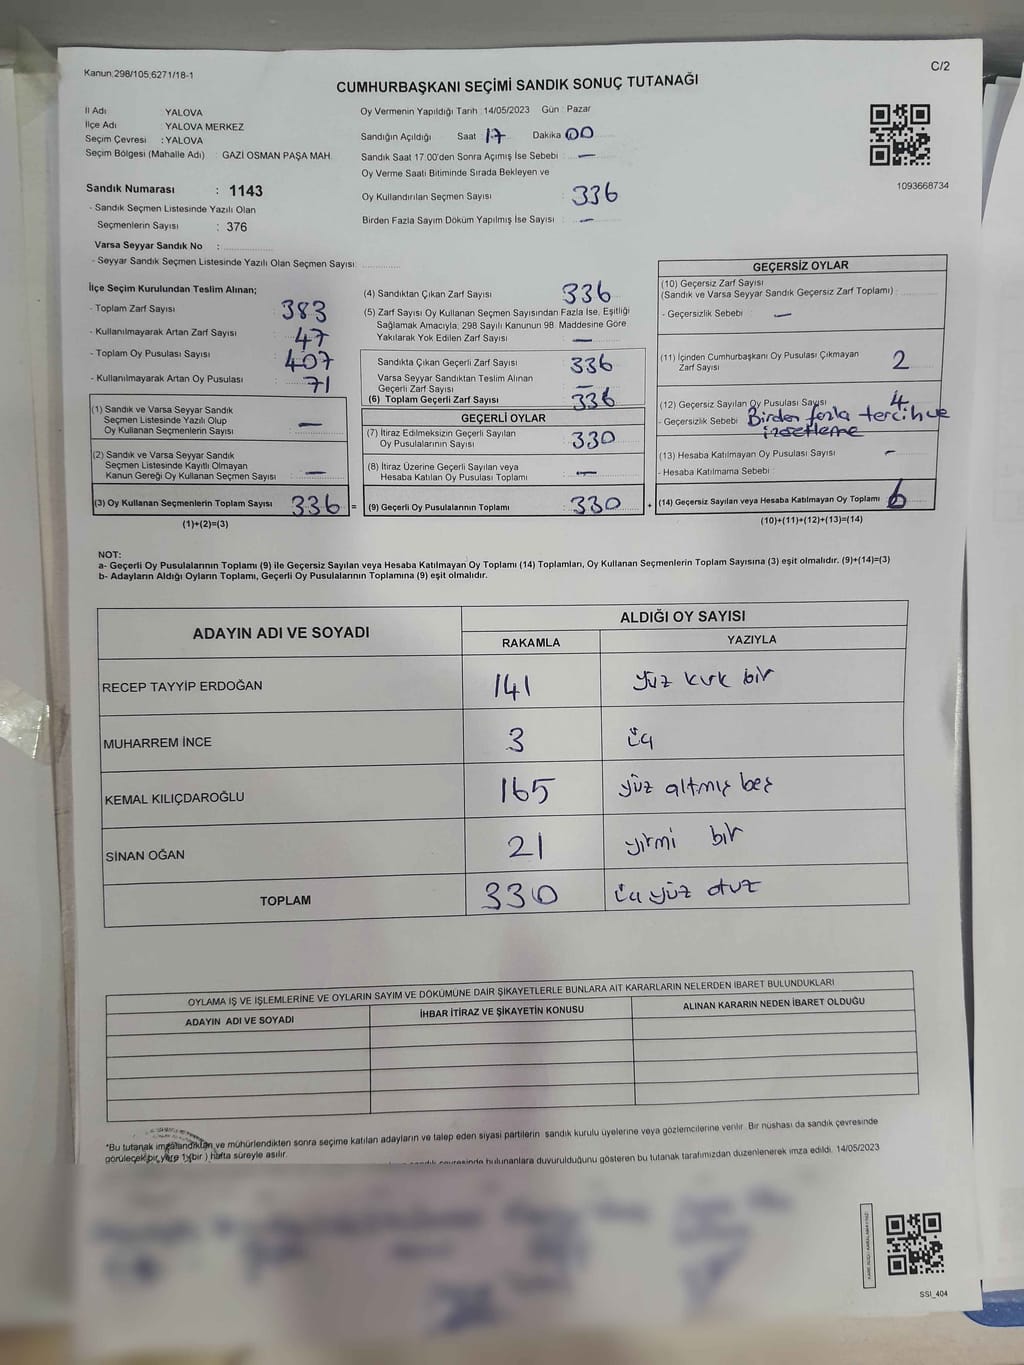 Kanun:298/105;6271/18-1
C/2
CUMHURBAŞKANI SEÇİMİ SANDIK SONUÇ TUTANAĞI
İl Adı : YALOVA
İlçe Adı : YALOVA MERKEZ
Seçim Çevresi : YALOVA
Seçim Bölgesi (Mahalle Adı) : GAZİ OSMAN PAŞA MAH.
Sandık Numarası : 1143
- Sandık Seçmen Listesinde Yazılı Olan
Seçmenlerin Sayısı : 376
Varsa Seyyar Sandık No :
- Seyyar Sandık Seçmen Listesinde Yazılı Olan Seçmen Sayısı:
Oy Vermenin Yapıldığı Tarih : 14/05/2023 Gün : Pazar
Sandığın Açıldığı Saat 17 Dakika 00
Sandık Saat 17:00'den Sonra Açımış İse Sebebi : —
Oy Verme Saati Bitiminde Sırada Bekleyen ve
Oy Kullandırılan Seçmen Sayısı : 336
Birden Fazla Sayım Döküm Yapılmış İse Sayısı : —
1093668734
İlçe Seçim Kurulundan Teslim Alınan;
- Toplam Zarf Sayısı : 383
- Kullanılmayarak Artan Zarf Sayısı : 47
- Toplam Oy Pusulası Sayısı : 407
- Kullanılmayarak Artan Oy Pusulası : 71
(1) Sandık ve Varsa Seyyar Sandık
Seçmen Listesinde Yazılı Olup
Oy Kullanan Seçmenlerin Sayısı : —
(2) Sandık ve Varsa Seyyar Sandık
Seçmen Listesinde Kayıtlı Olmayan
Kanun Gereği Oy Kullanan Seçmen Sayısı : —
(3) Oy Kullanan Seçmenlerin Toplam Sayısı : 336
(1)+(2)=(3)
(4) Sandıktan Çıkan Zarf Sayısı : 336
(5) Zarf Sayısı Oy Kullanan Seçmen Sayısından Fazla İse, Eşitliği
Sağlamak Amacıyla; 298 Sayılı Kanunun 98. Maddesine Göre
Yakılarak Yok Edilen Zarf Sayısı : —
Sandıkta Çıkan Geçerli Zarf Sayısı : 336
Varsa Seyyar Sandıktan Teslim Alınan
Geçerli Zarf Sayısı : —
(6) Toplam Geçerli Zarf Sayısı : 336
GEÇERLİ OYLAR
(7) İtiraz Edilmeksizin Geçerli Sayılan
Oy Pusulalarının Sayısı : 330
(8) İtiraz Üzerine Geçerli Sayılan veya
Hesaba Katılan Oy Pusulası Toplamı : —
= (9) Geçerli Oy Pusulalarının Toplamı : 330
GEÇERSİZ OYLAR
(10) Geçersiz Zarf Sayısı
(Sandık ve Varsa Seyyar Sandık Geçersiz Zarf Toplamı) :
- Geçersizlik Sebebi : —
(11) İçinden Cumhurbaşkanı Oy Pusulası Çıkmayan
Zarf Sayısı : 2
(12) Geçersiz Sayılan Oy Pusulası Sayısı : 4
- Geçersizlik Sebebi : Birden fazla tercih ve
(13) Hesaba Katılmayan Oy Pusulası Sayısı : —
- Hesaba Katılmama Sebebi :
+ (14) Geçersiz Sayılan veya Hesaba Katılmayan Oy Toplamı : 6
(10)+(11)+(12)+(13)=(14)
NOT:
a- Geçerli Oy Pusulalarının Toplamı (9) ile Geçersiz Sayılan veya Hesaba Katılmayan Oy Toplamı (14) Toplamları, Oy Kullanan Seçmenlerin Toplam Sayısına (3) eşit olmalıdır. (9)+(14)=(3)
b- Adayların Aldığı Oyların Toplamı, Geçerli Oy Pusulalarının Toplamına (9) eşit olmalıdır.
ADAYIN ADI VE SOYADI
ALDIĞI OY SAYISI
RAKAMLA YAZIYLA
RECEP TAYYİP ERDOĞAN 141 yüz kırk bir
MUHARREM İNCE 3 üç
KEMAL KILIÇDAROĞLU 165 yüz altmış beş
SİNAN OĞAN 21 yirmi bir
TOPLAM 330 üç yüz otuz
OYLAMA İŞ VE İŞLEMLERİNE VE OYLARIN SAYIM VE DÖKÜMÜNE DAİR ŞİKAYETLERLE BUNLARA AİT KARARLARIN NELERDEN İBARET BULUNDUKLARI
ADAYIN ADI VE SOYADI İHBAR İTİRAZ VE ŞİKAYETİN KONUSU ALINAN KARARIN NEDEN İBARET OLDUĞU
*Bu tutanak imzalandıktan ve mühürlendikten sonra seçime katılan adayların ve talep eden siyasi partilerin sandık kurulu üyelerine veya gözlemcilerine verilir. Bir nüshası da sandık çevresinde
görülecek bir yere 1 (bir ) hafta süreyle asılır.
sandık çevresinde bulunanlara duyurulduğunu gösteren bu tutanak tarafımızdan düzenlenerek imza edildi. 14/05/2023
SSİ_404